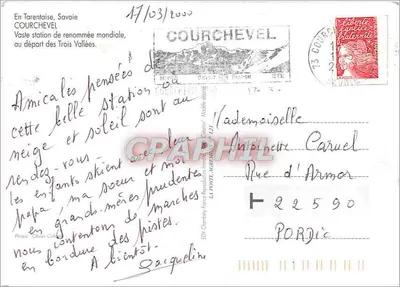 En Tarentaise, Savoie
COURCHEVEL
Vaste station de renommée mondiale,
au départ des Trois Vallées.
17/03/2000
COURCHEVEL
73 COURCHEVEL
liberté
égalité
fraternité
Amicales pensées de
cette belle station où
neige et soleil sont au
rendez-vous.
les enfants skient avec leur
papa, ma soeur et moi
en grand-mères prudentes
nous contentons de marches
en bordure des pistes.
A bientôt.
Jacqueline
CPAPHIL
Mademoiselle
Antoinette Caruel
Rue d'Armor
22590
PORDIC